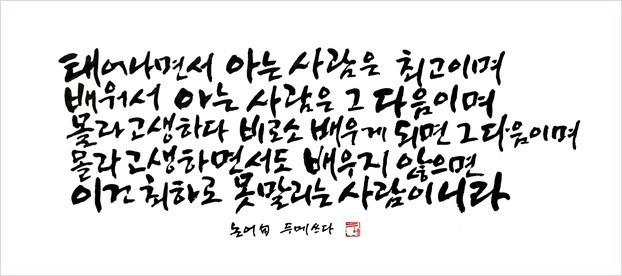 태어나면서 아는 사람은 최고이며
배워서 아는 사람은 그 다음이며
몰라 고생하다 비로소 배우게 되면 그 다음이며
몰라 고생하면서도 배우지 않으면
이건 최하로 못말리는 사람이니라
논어句 두메쓰다